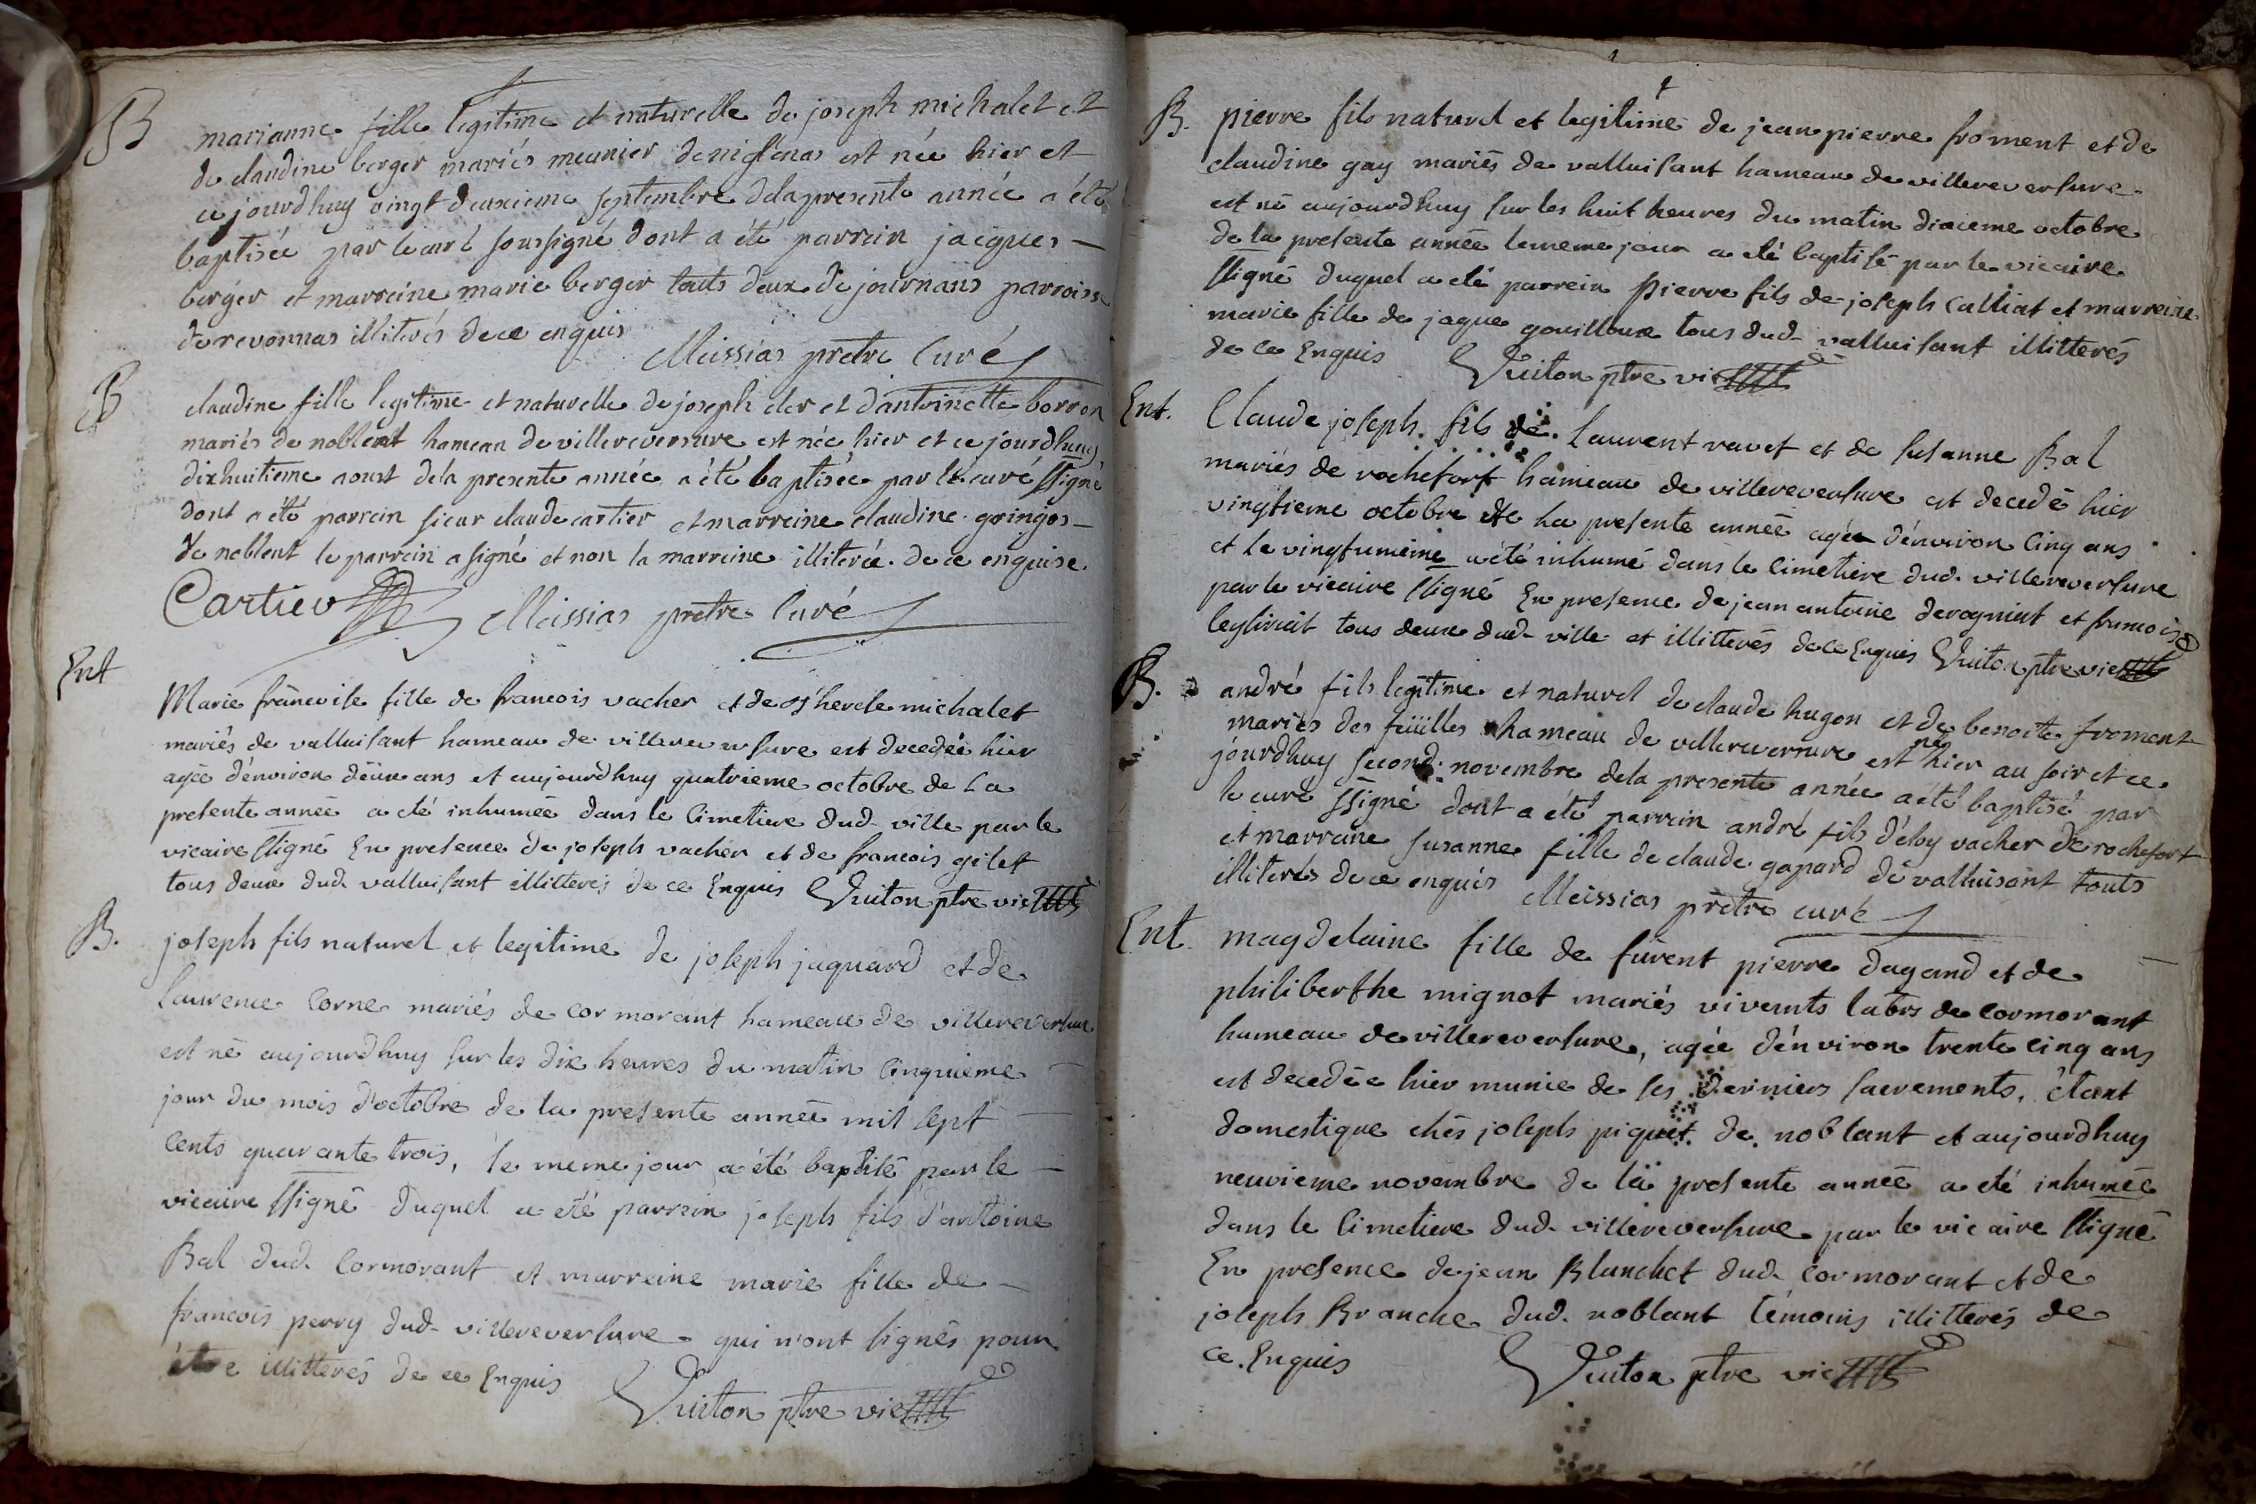 B marianne fille legitime et naturelle de joseph michalet et
de claudine berger mariés meunier de est née hier et
ce jourdhuy vingt deuxieme septembre dela presente année a été
baptisée par le curé soussigné dont a été parrain jacques
berger et marreine marie berger touts deux de journans parroisse
de revonnas illiterés de ce enquis
Meissias pretre Curé
B claudine fille legitime et naturelle de joseph cler et dantoinette borron
mariés de noblent hameau de villereversure est née hier et ce jourdhuy
dixhuitieme aoust dela presente année a été baptisée par le curé ssigné
dont a été parrein sieur claude cartier et marreine claudine goringos
de noblent le parrein a signé et non la marreine illiterée de ce enquise.
Cartier Meissias pretre Curé
Ent
Marie francoise fille de francois vacher et de michalet
mariés de valluisant hameau de villereversure est decedée hier
agée d'environ deux ans et aujourdhuy quatrieme octobre de La
presente année a eté inhumée dans le Cimetiere dud. ville par le
vicaire ssigné En presence de joseph vacher et de francois gilet
tous deux dud. valluisant illitterés de ce Enquis Vuiton ptre vic
B. joseph fils naturel et legitime de joseph jaquard et de
Laurence Corne mariés de cormorant hameau de villereversure
est né aujourdhuy sur les dix heures du matin Cinquieme
jour du mois d'octobre de la presente année mil sept
Cents quarante trois, le meme jour a été baptisé par le
vicaire ssigné duquel a eté parrein joseph fils d'antoine
Bal dud. Cormorant et marreine marie fille de
francois perry dud. villereversure qui n'ont signés pour
être illitterés de ce Enquis Vuiton ptre vic
B. pierre fils naturel et legitime de jean pierre froment et de
claudine gay mariés de valluisant hameau de villereversure
est né aujourdhuy sur les huit heures du matin dixieme octobre
de la presente année le meme jour a eté baptisé par le vicaire
ssigné duquel a eté parrein pierre fils de joseph Calliat et marreine
marie fille de jaque gouilloux tous dud. valluisant illitterés
de ce Enquis Vuiton ptre vic
Ent. Claude joseph fils de Laurent ravet et de susanne Bal
mariés de rochefort hameau de villereversure est decedé hier
vingtieme octobre de La presente année agée d'environ Cinq ans
et le vingtunieme a été inhumé dans le Cimetiere dud. villereversure
par le vicaire ssigné En presence de jean antoine derognat et francois
tous deux dud. ville et illitterés de ce Enquis Vuiton ptre vic
B. andré fils legitime et naturel de claude hugon et de benoite froment
mariés des feüilles hameau de villereversure est né hier au soir et ce
jourdhuy second novembre dela presente année a été baptisé par
le curé ssigné dont a été parrein andré fils d'eloy vacher de rochefort
et marreine susanne fille de claude gapard de valluisant touts
illiterés de ce enquis Meissias prêtre curé
Ent. magdelaine fille de furent pierre dagand et de
philiberthe mignot mariés vivants labrs de Cormorant
hameau de villereversure, agée d'environ trente cinq ans
est decedée hier munie de ses derniers sacrements, étant
domestique chés joseph piquet de noblant et aujourdhuy
neuvieme novembre de la presente année a eté inhumée
dans le Cimetiere dud. villereversure par le vicaire ssigné
En presence de jean Blanchet dud. Cormorant et de
joseph Branche dud. noblant témoins illitterés de
ce. Enquis Vuiton ptre vic